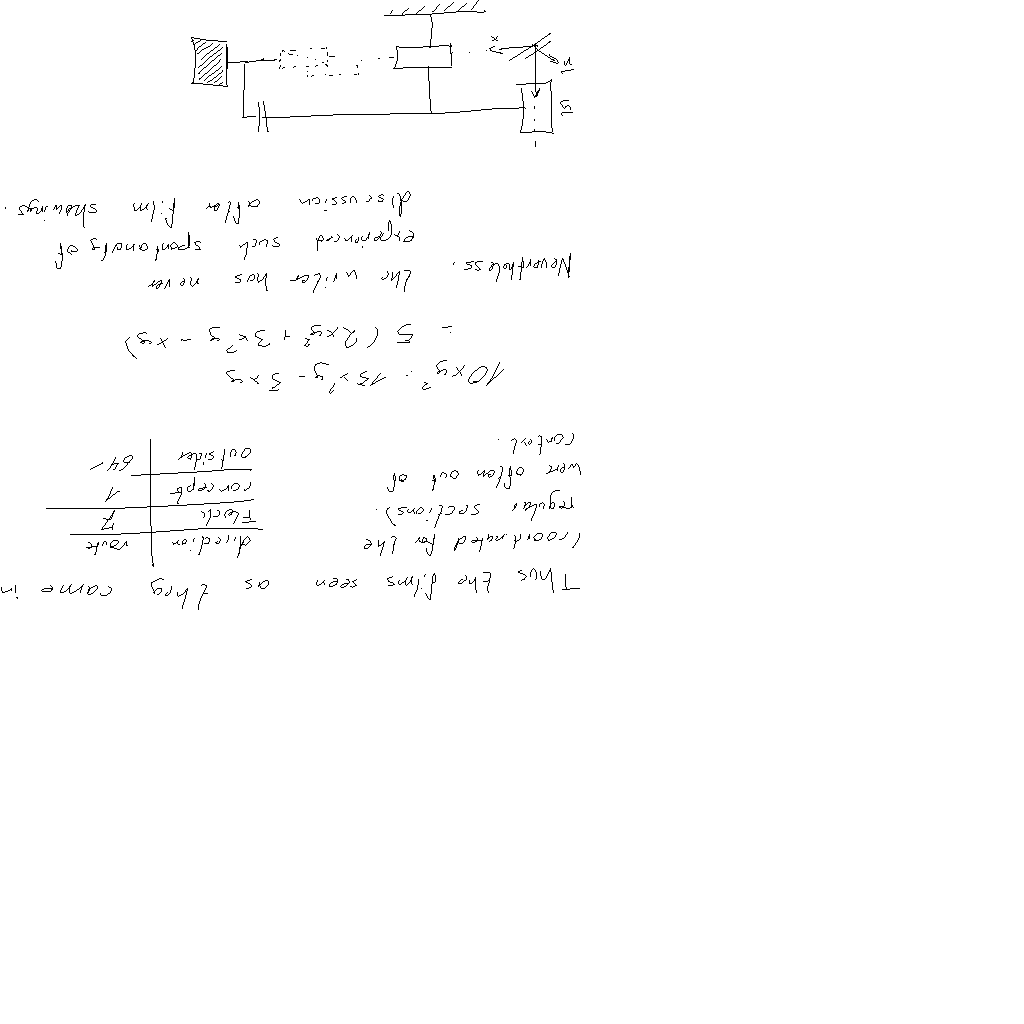 Thus the films seen as they came in
(coordinated for the
regular sections).
were often out of
context.
direction
7
concept 1
outsider 64-
10xy² + 15x²y - 5xy
= 5 (2xy² + 3x²y - xy)
Nevertheless, the writer has never
experienced such spontanety of
discussion after film showings.
y
x